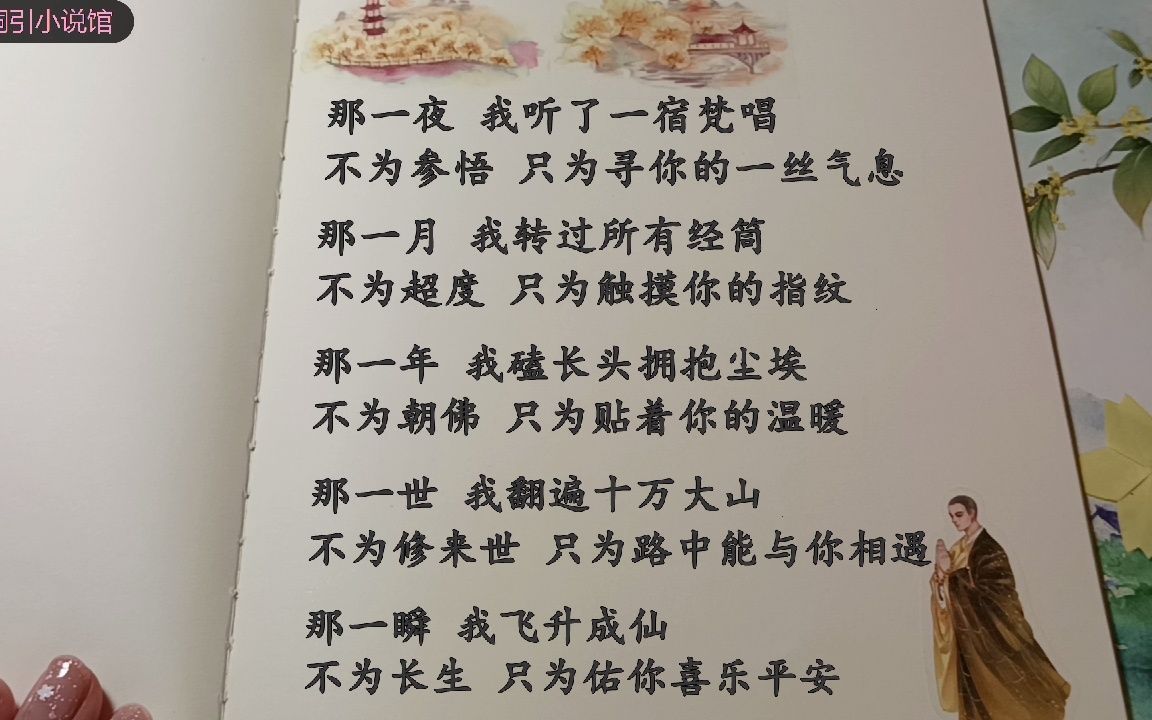 引小说馆
那一夜 我听了一宿梵唱
不为参悟 只为寻你的一丝气息
那一月 我转过所有经筒
不为超度 只为触摸你的指纹
那一年 我磕长头拥抱尘埃
不为朝佛 只为贴着你的温暖
那一世 我翻遍十万大山
不为修来世 只为路中能与你相遇
那一瞬 我飞升成仙
不为长生 只为佑你喜乐平安